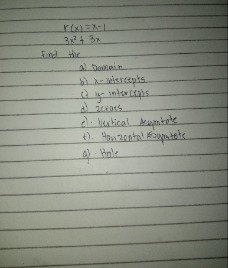 r(x) = x-1
3x² + 3x
Find the
a) Domain
b) x-intercepts
c) y-intercepts
d) zeroes
e). Vertical Asymtote
f). Horizontal asymtote
g). Hole